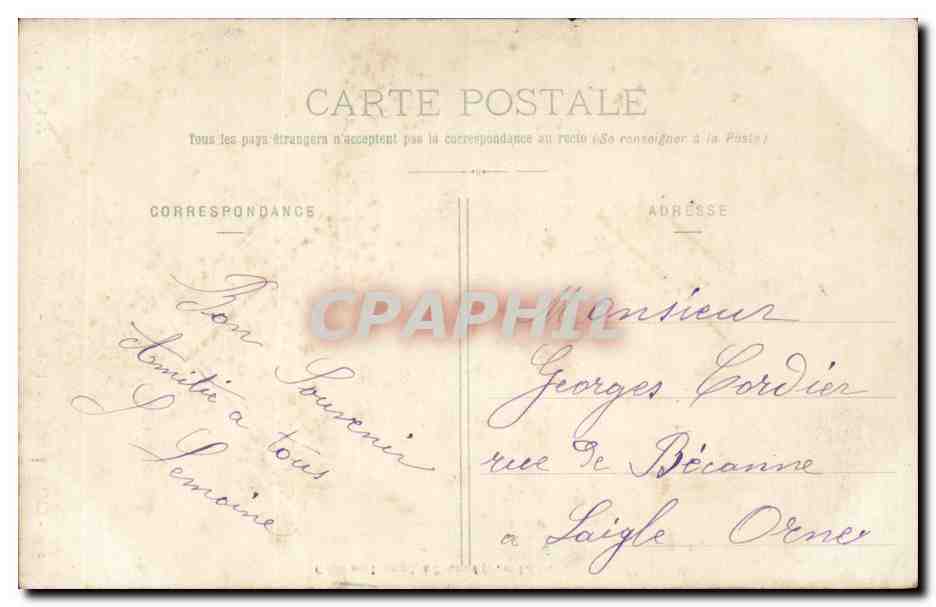 CARTE POSTALE
Tous les pays étrangers n'acceptent pas la correspondance au recto (Se renseigner à la Poste)
CORRESPONDANCE
Bon Souvenir
Amitié a tous
S Lemoine
ADRESSE
Monsieur
Georges Cordier
rue de Bécanne
a Laigle Orne
CPAPHIL